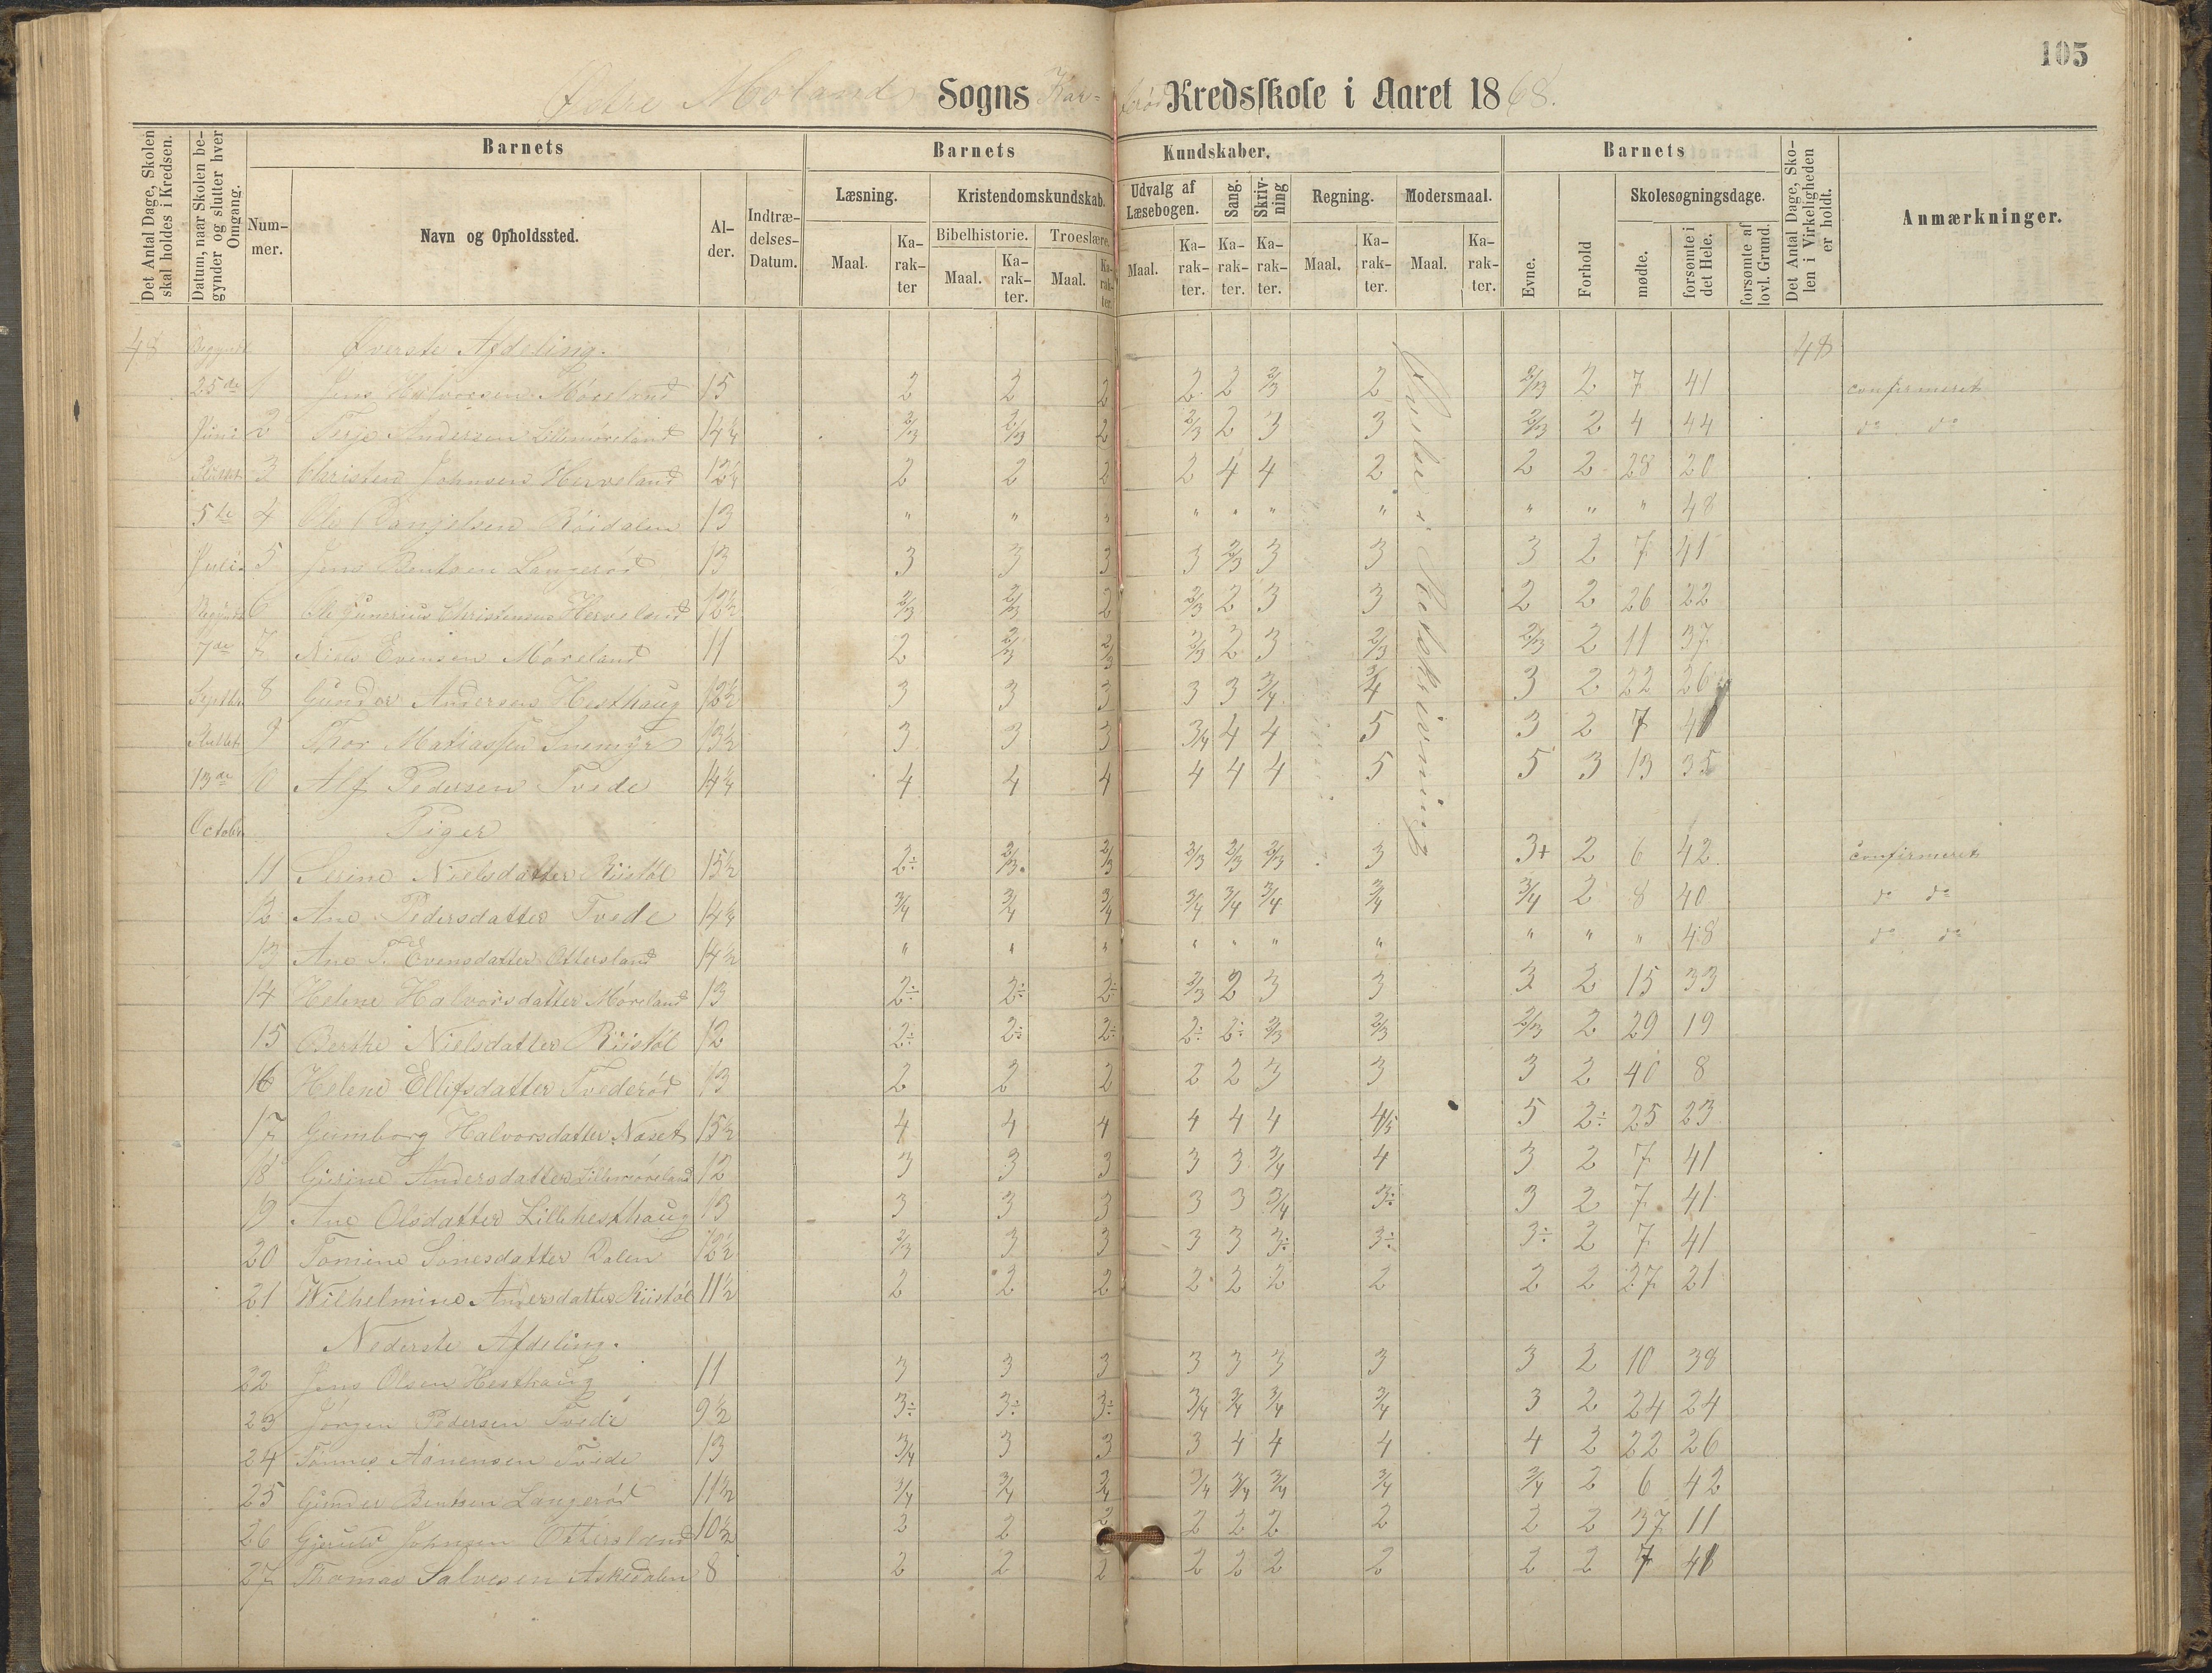 105
Østre Molands Sogns Kar= Kredsskole i Aaret 1868.
Det Antal Dage, Skolen skal holdes i Kredsen.
Datum, naar Skolen begynder og slutter hver Omgang.
Barnets
Nummer.
Navn og Opholdssted.
Alder.
Indtrædelses-Datum.
Barnets Kundskaber.
Læsning.
Kristendomskundskab.
Udvalg af Læsebogen.
Sang.
Skrivning
Regning.
Modersmaal.
Bibelhistorie.
Troeslære.
Maal.
Karakter
Maal.
Karakter.
Maal.
Karakter.
Maal.
Karakter.
Karakter.
Karakter.
Maal.
Karakter.
Maal.
Karakter.
Barnets
Evne.
Forhold
Skolesøgningsdage.
mødte.
forsømte i det Hele.
forsømte af lovl. Grund.
Det Antal Dage, Skolen i Virkeligheden er holdt.
Anmærkninger.
48 Begyndt Øverste Afdeling. 48
25de 1 Jens Halvorsen Møreland 15 2 2 2 2 2 2/3 2 2/3 2 7 41 confirmeret
Juni 2 Terje Andersen Lillemøreland 14¼ 2/3 2/3 2 2/3 2 3 3 2/3 2 4 44 do do
3 Christen Johnsen Herveland 12¼ 2 2 2 2 4 4 2 2 2 28 20
5te 4 Ole Danjelsen Röidalen 13 " " " " " " " " " " 48
Juli 5 Jens Bentsen Langerød 13 3 3 3 3 2/3 3 3 3 2 7 41
Begyndt 6 Ole Gunerius Christensen Herveland 12½ 2/3 2/3 2 2/3 2 3 3 2 2 26 22
7de 7 Niels Evensen Møreland 11 2 2/3 2/3 2/3 2 3 2/3 2/3 2 11 37
Septbr 8 Gunder Andersen Hesthaug 12½ 3 3 3 3 3 3/4 3/4 3 2 22 26
Sluttet 9 Thor Mathiassen Snemyr 13½ 3 3 3 3/4 4 4 5 3 2 7 41
13de 10 Alf Pedersen Tvede 14¼ 4 4 4 4 4 4 5 5 3 13 35
October Piger
11 Serine Nielsdatter Riistøl 15½ 2÷ 2/3 2/3 2/3 2/3 2/3 3 3+ 2 6 42 confirmeret
12 Ane Pedersdatter Tvede 14¼ 3/4 3/4 3/4 3/4 3/4 3/4 3/4 3/4 2 8 40 do do
13 Ane T. Evensdatter Ottersland 14½ " " " " " " " " " " 48 do do
14 Helene Halvorsdatter Møreland 13 2÷ 2÷ 2÷ 2/3 2 3 3 3 2 15 33
15 Berthe Nielsdatter Riistøl 12 2÷ 2÷ 2÷ 2÷ 2÷ 2/3 2/3 2/3 2 29 19
16 Helene Ellefsdatter Tvederød 13 2 2 2 2 2 3 3 3 2 40 8
17 Gumborg Halvorsdatter Næset 15½ 4 4 4 4 4 4 4/5 5 2÷ 25 23
18 Gurine Andersdatter Lillemøreland 12 3 3 3 3 3 3/4 4 3 2 7 41
19 Ane Olsdatter Lillehesthaug 13 3 3 3 3 3 3/4 3÷ 3 2 7 41
20 Tomine Tønesdatter Dalen 12½ 2/3 3 3 3 3 3÷ 3÷ 3÷ 2 7 41
21 Wilhelmine Andersdatter Riistøl 11½ 2 2 2 2 2 2 2 2 2 27 21
Nederste Afdeling.
22 Jens Olsen Hesthaug 11 3 3 3 3 3 3 3 3 2 10 38
23 Jørgen Pedersen Tvede 9½ 3÷ 3÷ 3÷ 3/4 3/4 3/4 3/4 3 2 24 24
24 Tønnes Aanensen Tvede 13 3/4 3 3 3 4 4 4 4 2 22 26
25 Gunder Bentsen Langerød 11½ 3/4 3/4 3/4 3/4 3/4 3/4 3/4 3/4 2 6 42
26 Gjeruld Johnsen Ottersland 10½ 2 2 2 2 2 2 2 2 2 37 11
27 Thomas Salvesen Askedalen 8 2 2 2 2 2 2 2 2 2 7 41
Øvelse i Retskrivning